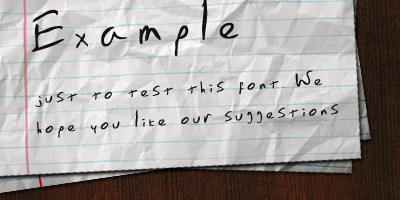 Example
just to test this font. We
hope you like our suggestions